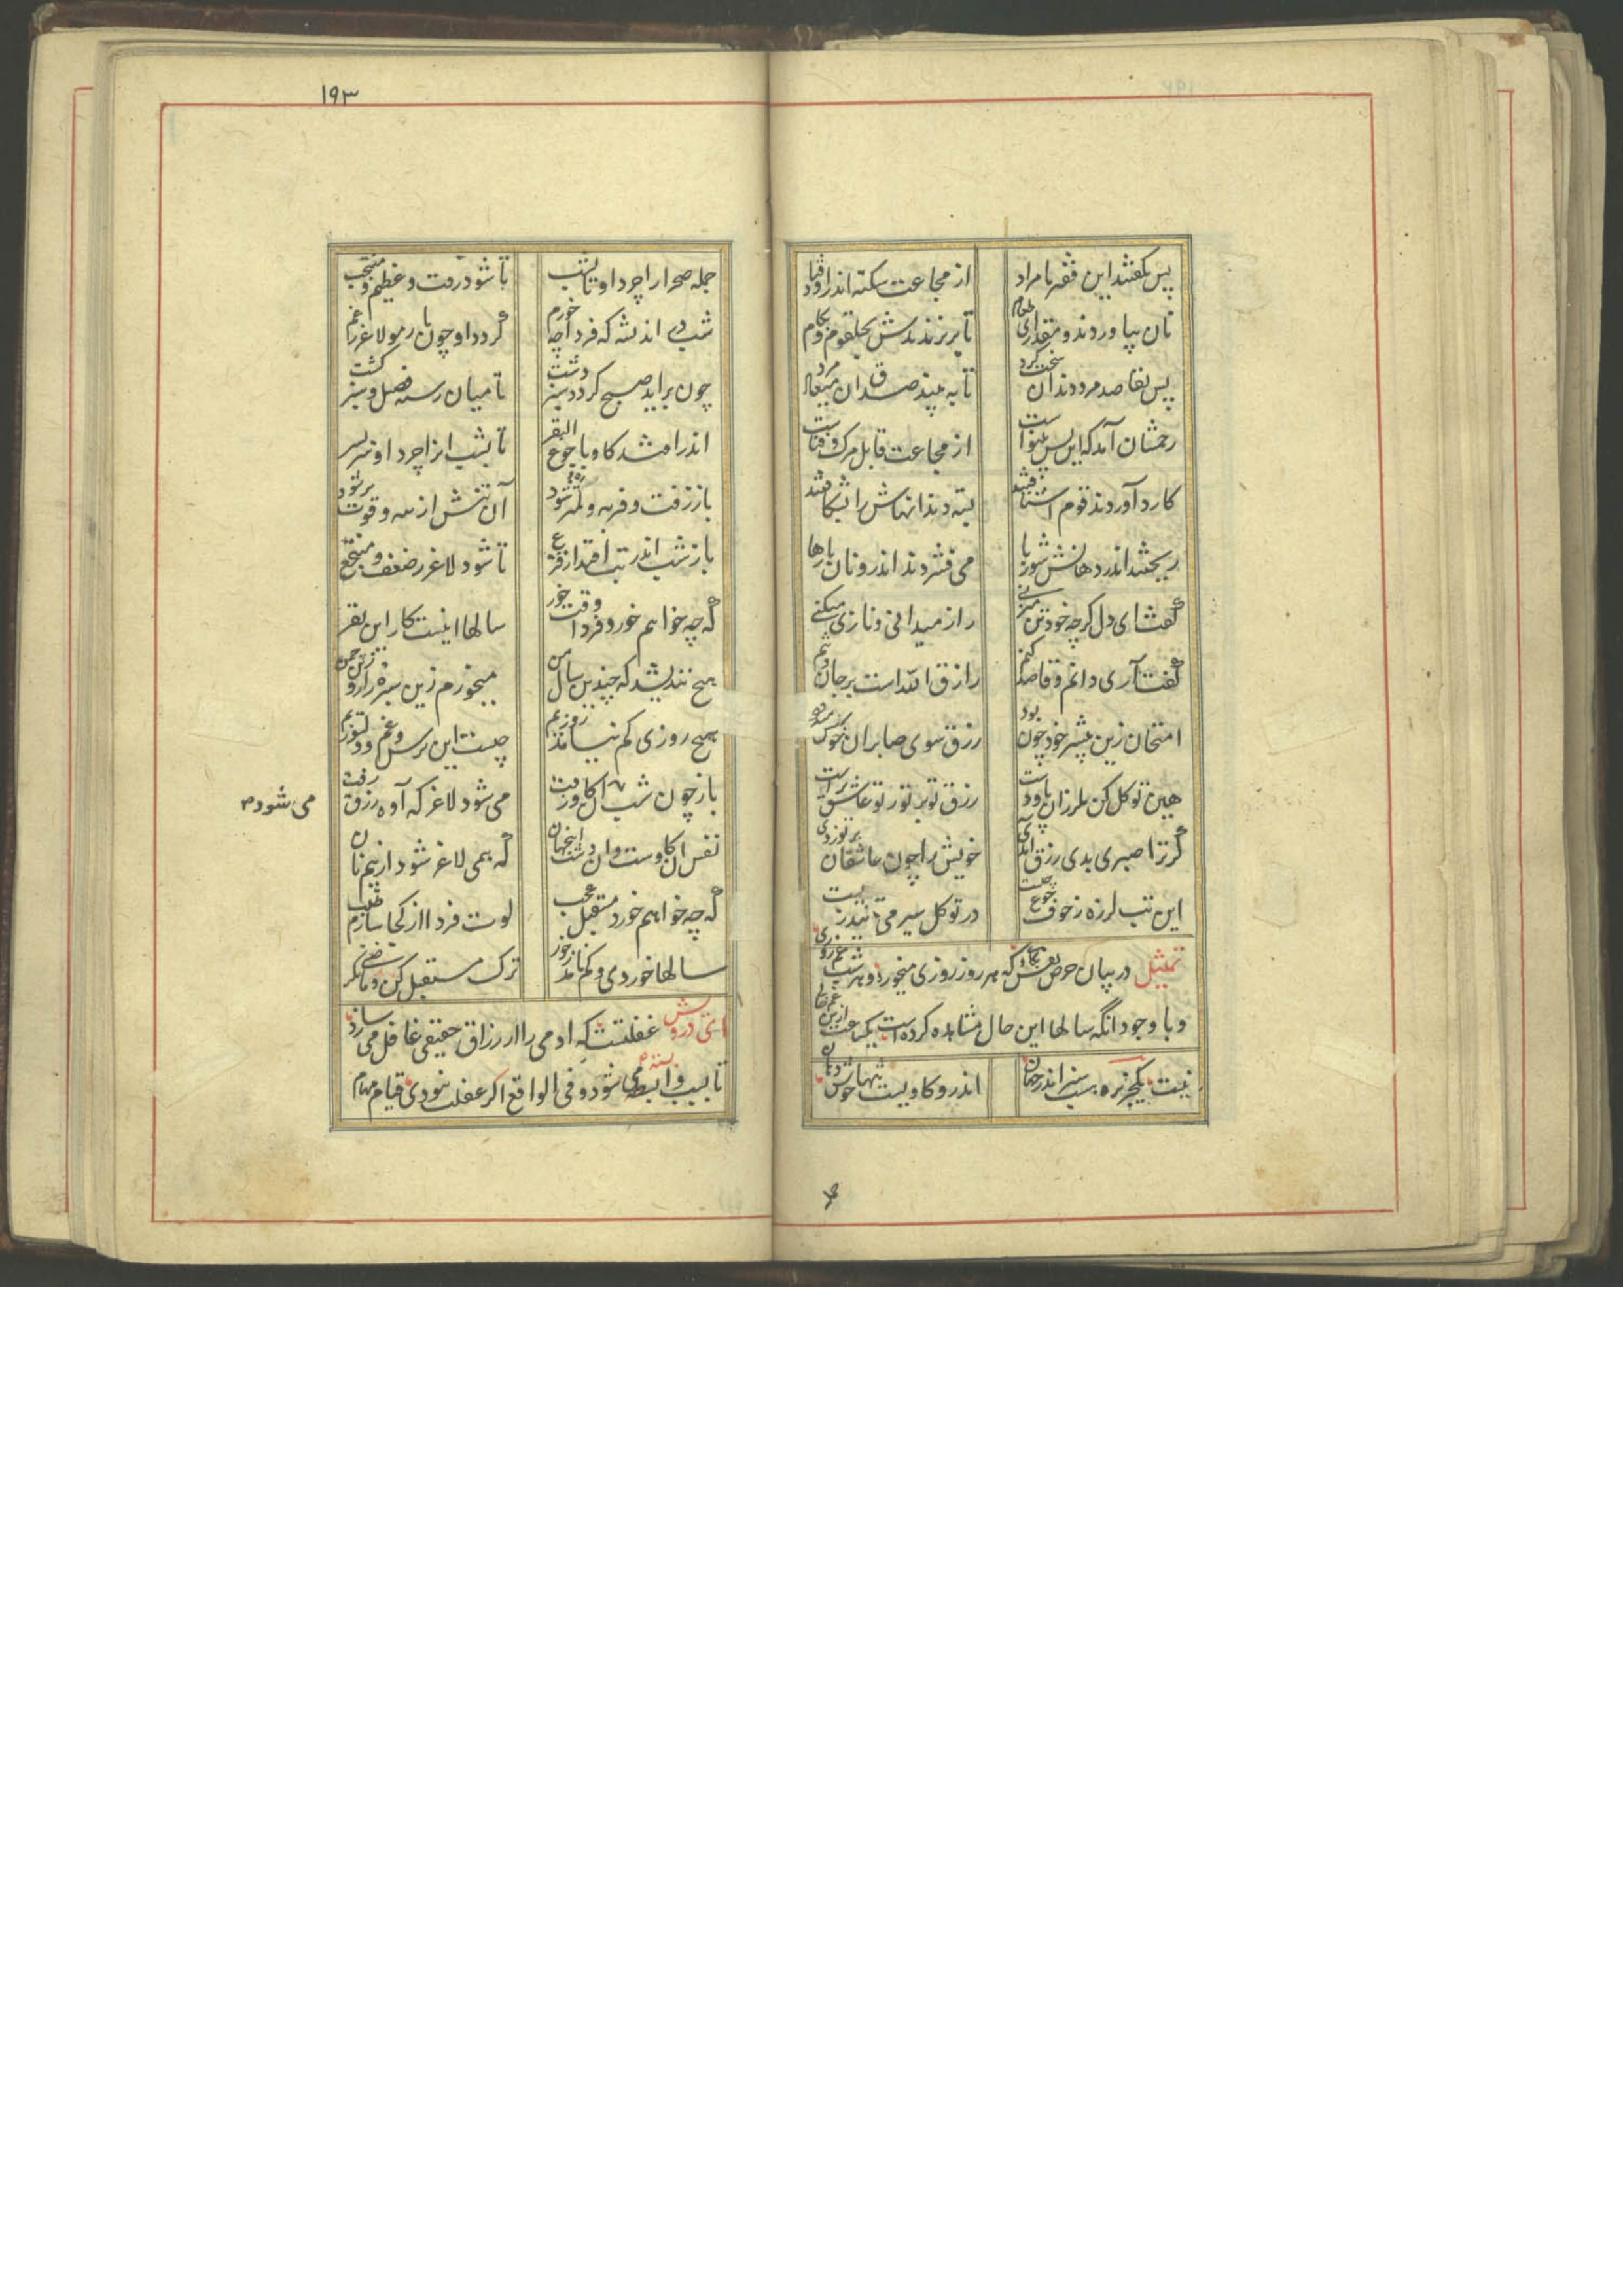 پس بگفتند این فقیر نامراد از مجاعت سکته اندر اوفتاد
نان بیاوردند و مقداری طعام تا بریزندش بحلقوم و بکام
پس بقاصد مرد دندان سخت کرد تا به بیند صدق ان میعاد مرد
رحمشان آمد که این بس بینواست از مجاعت قابل مرک و فناست
کارد آوردند قوم اشتافتند بسته دندانهاش را بشکافتند
ریختند اندر دهانش شوربا می فشردند اندرو نان بارها
گفت ای دل کرچه خود تن میزنی راز میدانی و نازی میکنی
گفت آری دانم و قاصد کنم رازق الله است بر جان و تنم
امتحان زین بیشتر خود چون بود رزق سوی صابران خوش میرود
هین توکل کن ملرزان پا و دست رزق تو بر تو ز تو عاشق تر است
گر ترا صبری بدی رزق آمدی خویش را چون عاشقان بر تو زدی
این تب لرزه ز خوف جوع چیست در توکل سیر می تانید زیست
تمثیل در بیان حرص نفس که هر روز روزی میخورد و هر شب غم روزی
و با وجود انگه سالها این حال مشاهده کرده است یکساعت ازین غم خالی
نیست یکجزیره سبز اندر جهان اندرو کاویست تنها خوش دهان
۱۹۳
جمله صحرا را چرد او تا بشب تا شود زفت و عظیم و منتجب
شب در اندیشه که فردا چه خورم گردد او چون تار مو لاغر ز غم
چون براید صبح کردد سبز دشت تا میان رسته قصیل و سبز کشت
اندر افتد کاو با جوع البقر تا بشب انرا چرد او سربسر
باز زفت و فربه و لمتر شود آن تنش از پیه و قوت پر شود
باز شب اندر تب افتد از فزع تا شود لاغر ز ضعف و منتجع
که چه خواهم خورد فردا وقت خور سالها اینست کار این بقر
هیچ نندیشد که چندین سال من میخورم زین سبزه زار و زین چمن
هیچ روزی کم نیامد روزیم چیست این ترس و غم و دلسوزیم
باز چون شب ان کاو زفت می شود لاغر که آوه رزق رفت
می شود م
نفس ان کاوست و ان دشت اینجهان که همی لاغر شود از بیم نان
که چه خواهم خورد مستقبل عجب لوت فردا از کجا سازم طلب
سالها خوردی و کم نامد ز خور ترک مستقبل کن و ماضی نگر
ای درویش غفلتست که ادمی را از رزاق حقیقی غافل می سازد
تا بسبب و ابسطه می شود و فی الواقع اکر غفلت نبودی قیام مهام